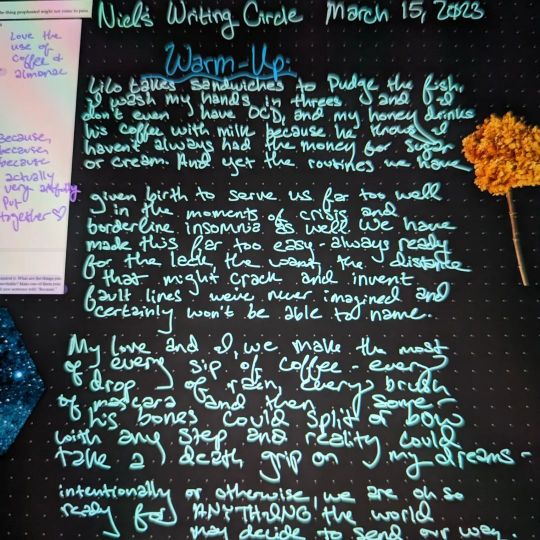 the thing prophesied might not come to pass.
Love the
use of
coffee &
almanac
Because,
because,
because
actually
very artfully
put
together ♡
Niel's Writing Circle March 15, 2023
Warm-Up:
Lilo takes sandwiches to Pudge the fish,
I wash my hands in threes and I
don't even have OCD, and my honey drinks
his coffee with milk because he knows I
haven't always had the money for sugar
or cream. And yet the routines we have
given birth to serve us far too well
in the moments of crisis and
borderline insomnia as well. We have
made this far too easy - always ready
for the lack, the want, the distance
that might crack and invent
fault lines we've never imagined and
certainly won't be able to name.
My love and I, we make the most
of every sip of coffee - every
drop of rain, every brush
of mascara and then some -
his bones could split or bow
with any step and reality could
take a death grip on my dreams -
intentionally or otherwise, we are oh so
ready for ANYTHING the world
may decide to send our way.